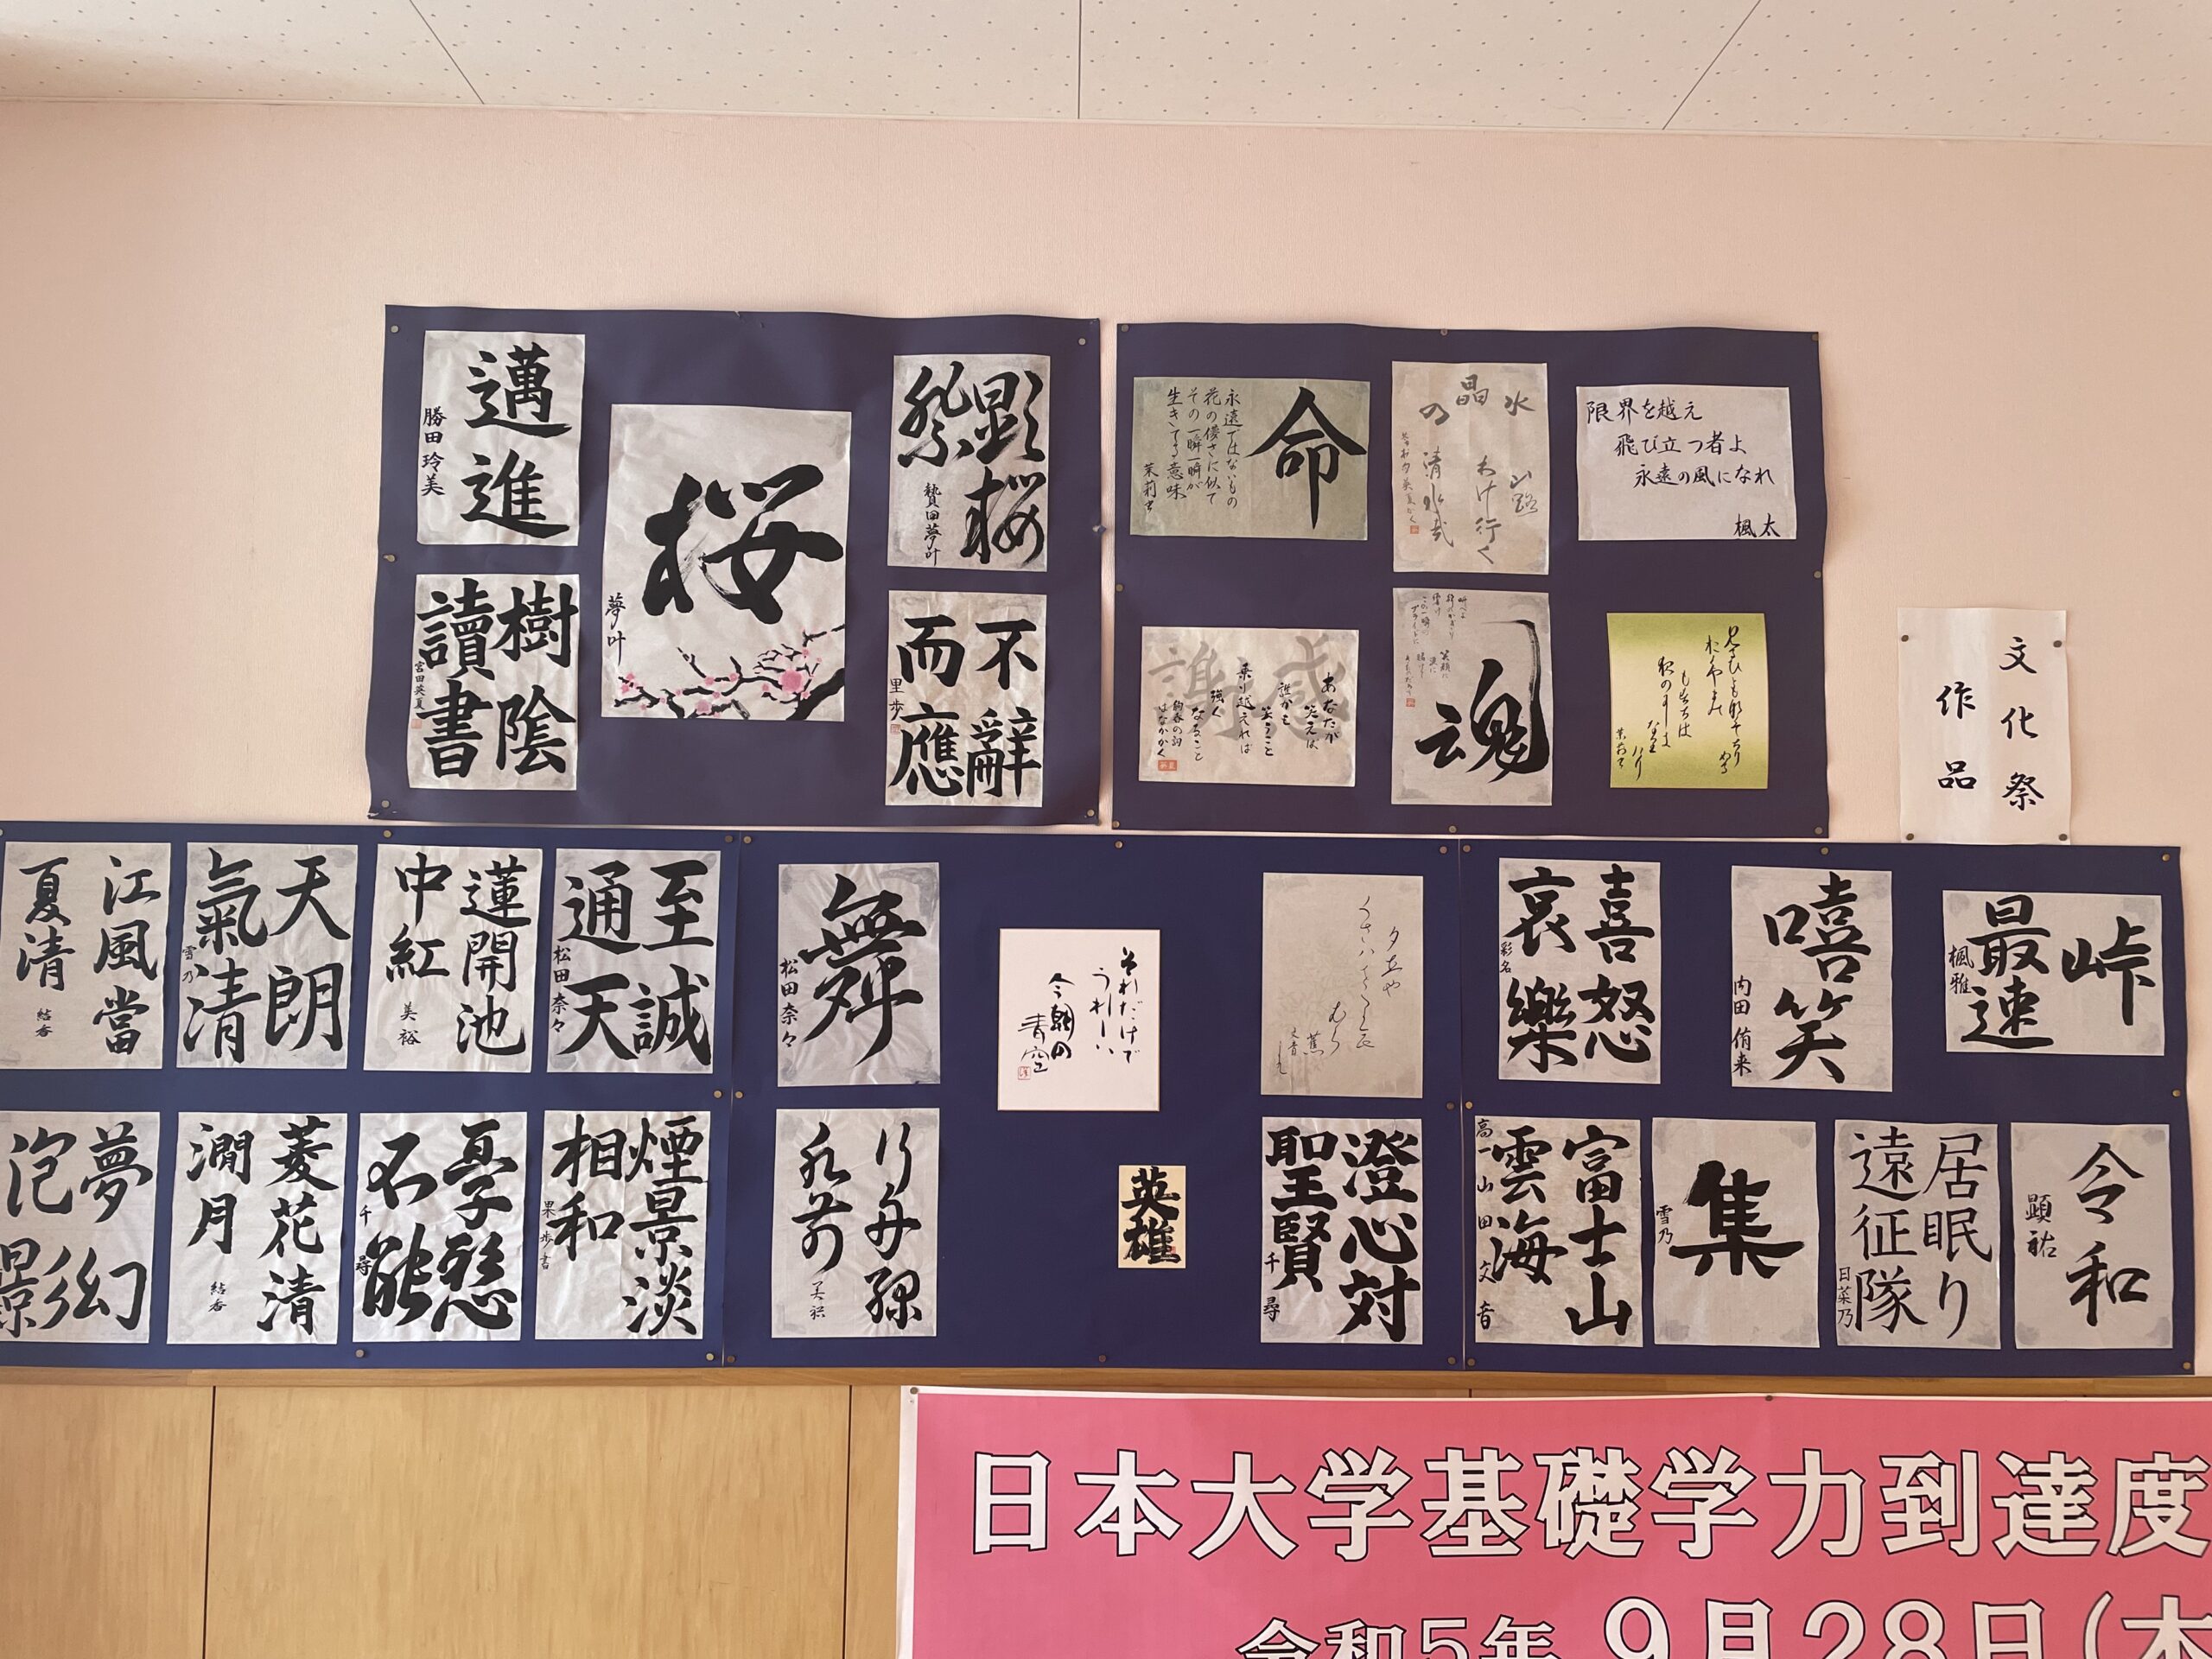 邁進
勝田玲美
樹陰
讀書
宮田英夏
桜
夢叶
顕桜
祭
贄田夢叶
不辭
而應
里歩
命
永遠ではないもの
花の儚さに似て
その一瞬一瞬が
生きてる意味
茉莉
水晶の
山路
わけ行く
清水哉
限界を越え
飛び立つ者よ
永遠の風になれ
楓太
感謝
あなたが
笑えば
誰かも
笑うこと
乗り越えれば
強く
なること
魂
文化祭
作品
江風當
夏清
結香
天朗
氣清
雪乃
蓮開池
中紅
美裕
至誠
通天
松田奈々
舞
松田奈々
それだけで
うれしい
今朝の
青空
夕立や
喜怒
哀樂
彩名
嘻笑
内田侑来
峠
最速
楓雅
夢幻
泡影
菱花清
澗月
結香
千尋
煙景淡
相和
果歩書
英雄
澄心対
聖賢
千尋
富士山
雲海
高一山田文音
集
雪乃
居眠り
遠征隊
日菜乃
令和
顕祐
日本大学基礎学力到達度
令和5年 9月28日(木